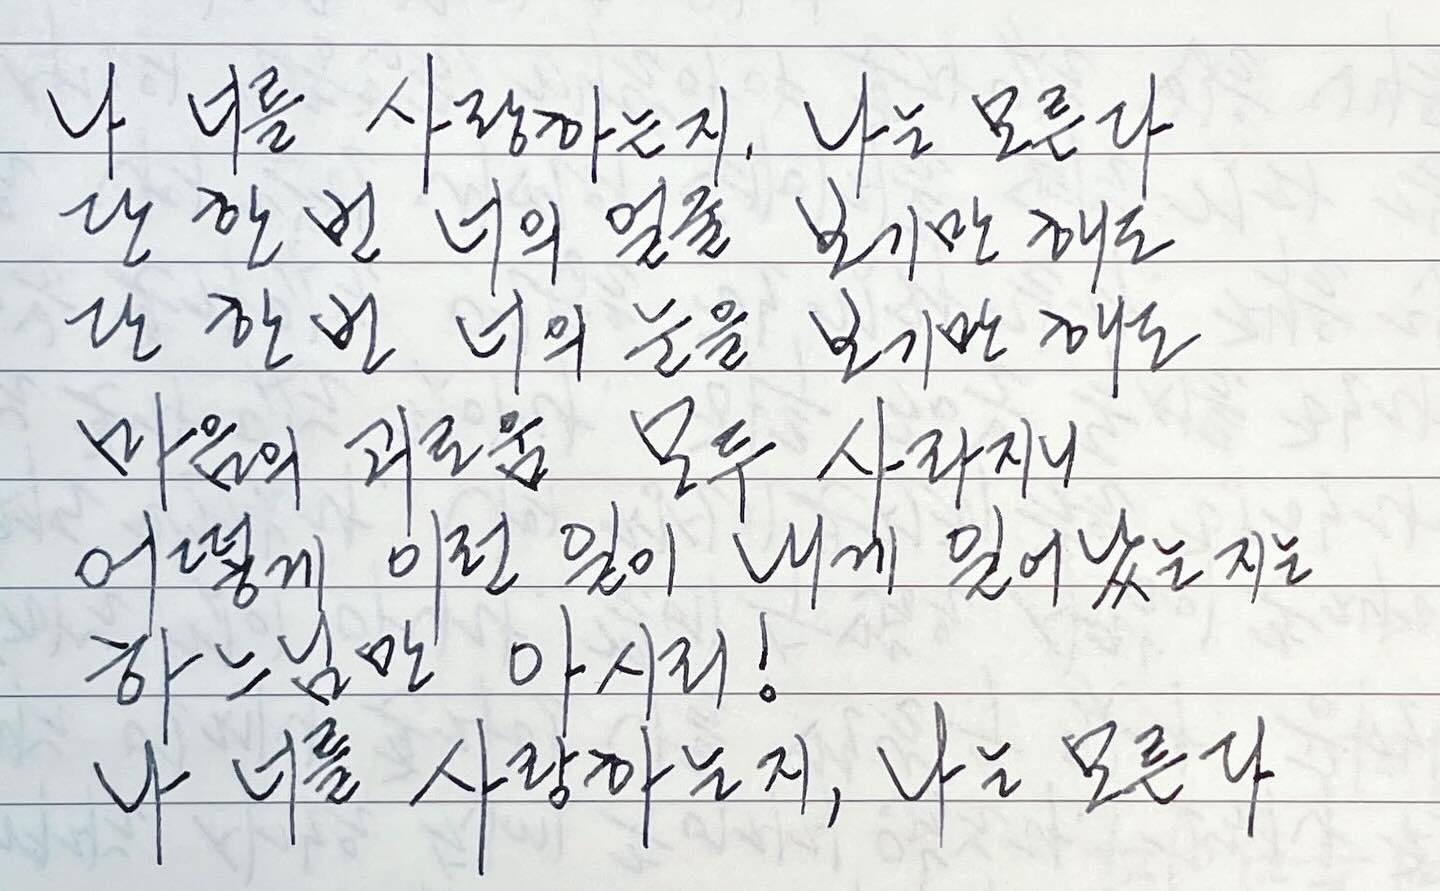 나 너를 사랑하는지. 나는 모른다
단 한 번 너의 얼굴 보기만 해도
단 한 번 너의 눈을 보기만 해도
마음의 괴로움 모두 사라지니
어떻게 이런 일이 내게 일어났는지는
하느님만 아시리!
나 너를 사랑하는지, 나는 모른다